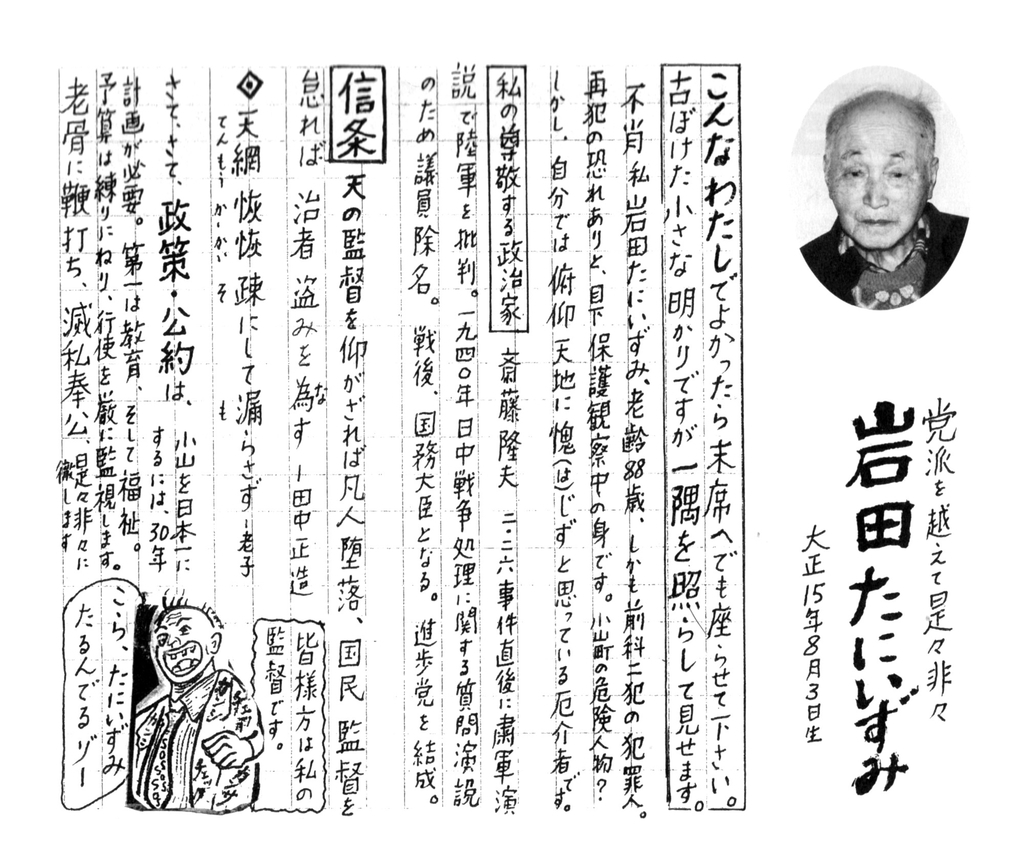 党派を越えて是々非々
岩田たにいずみ
大正15年8月3日生
こんなわたしでよかったら末席へでも座らせて下さい。
古ぼけた小さな明かりですが一隅を照らして見せます。
不肖私岩田たにいずみ、老齢88歳、しかも前科二犯の犯罪人。
再犯の恐れありと、目下保護観察中の身です。小山町の危険人物?
しかし、自分では俯仰天地に愧(は)じずと思っている厄介者です。
私の尊敬する政治家 斎藤隆夫 二・二六事件直後に粛軍演
説で陸軍を批判。一九四〇年日中戦争処理に関する質問演説
のため議員除名。戦後、国務大臣となる。進歩党を結成。
信条 天の監督を仰がざれば凡人堕落、国民監督を
怠れば治者盗みを為す ー田中正造
な
◈天網恢恢疎にして漏らさず ー老子
てんもうかいかいそ も
さて、さて、政策・公約は、小山を日本一に
するには、30年
計画が必要。第一は教育、そして福祉。
予算は練りにねり、行使を厳に監視します。
老骨に鞭打ち、滅私奉公、是々非々に
徹します
皆様方は私の
監督です。
こら、たにいずみ
たるんでるゾー